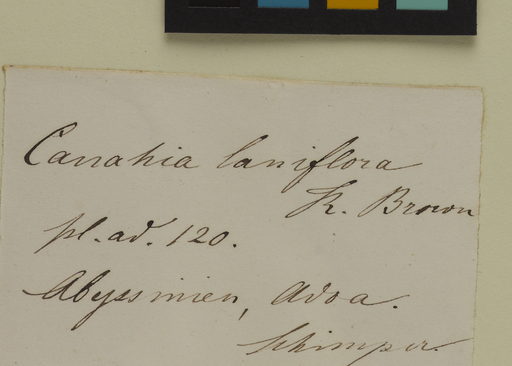 Canahia laniflora
R. Brown
pl. ad. 120.
Abyssinien, Adoa.
Schimper.